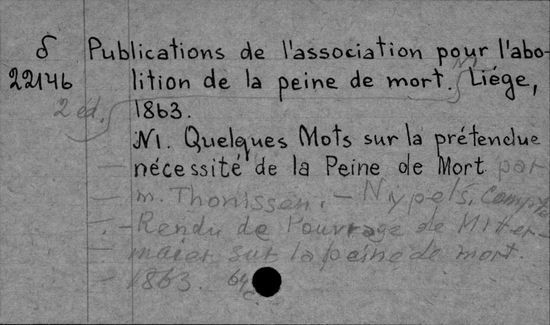 δ Publications de l'association pour l'abo-
22146 lition de la peine de mort. Liége,
2 ed. 1863.
N1. Quelques Mots sur la prétendue
nécessité de la Peine de Mort par
m. Thonissen. - Nypels, Compte
- Rendu de l'ouvrage de Mitter-
maier sur la peine de mort.
- 1863. 64